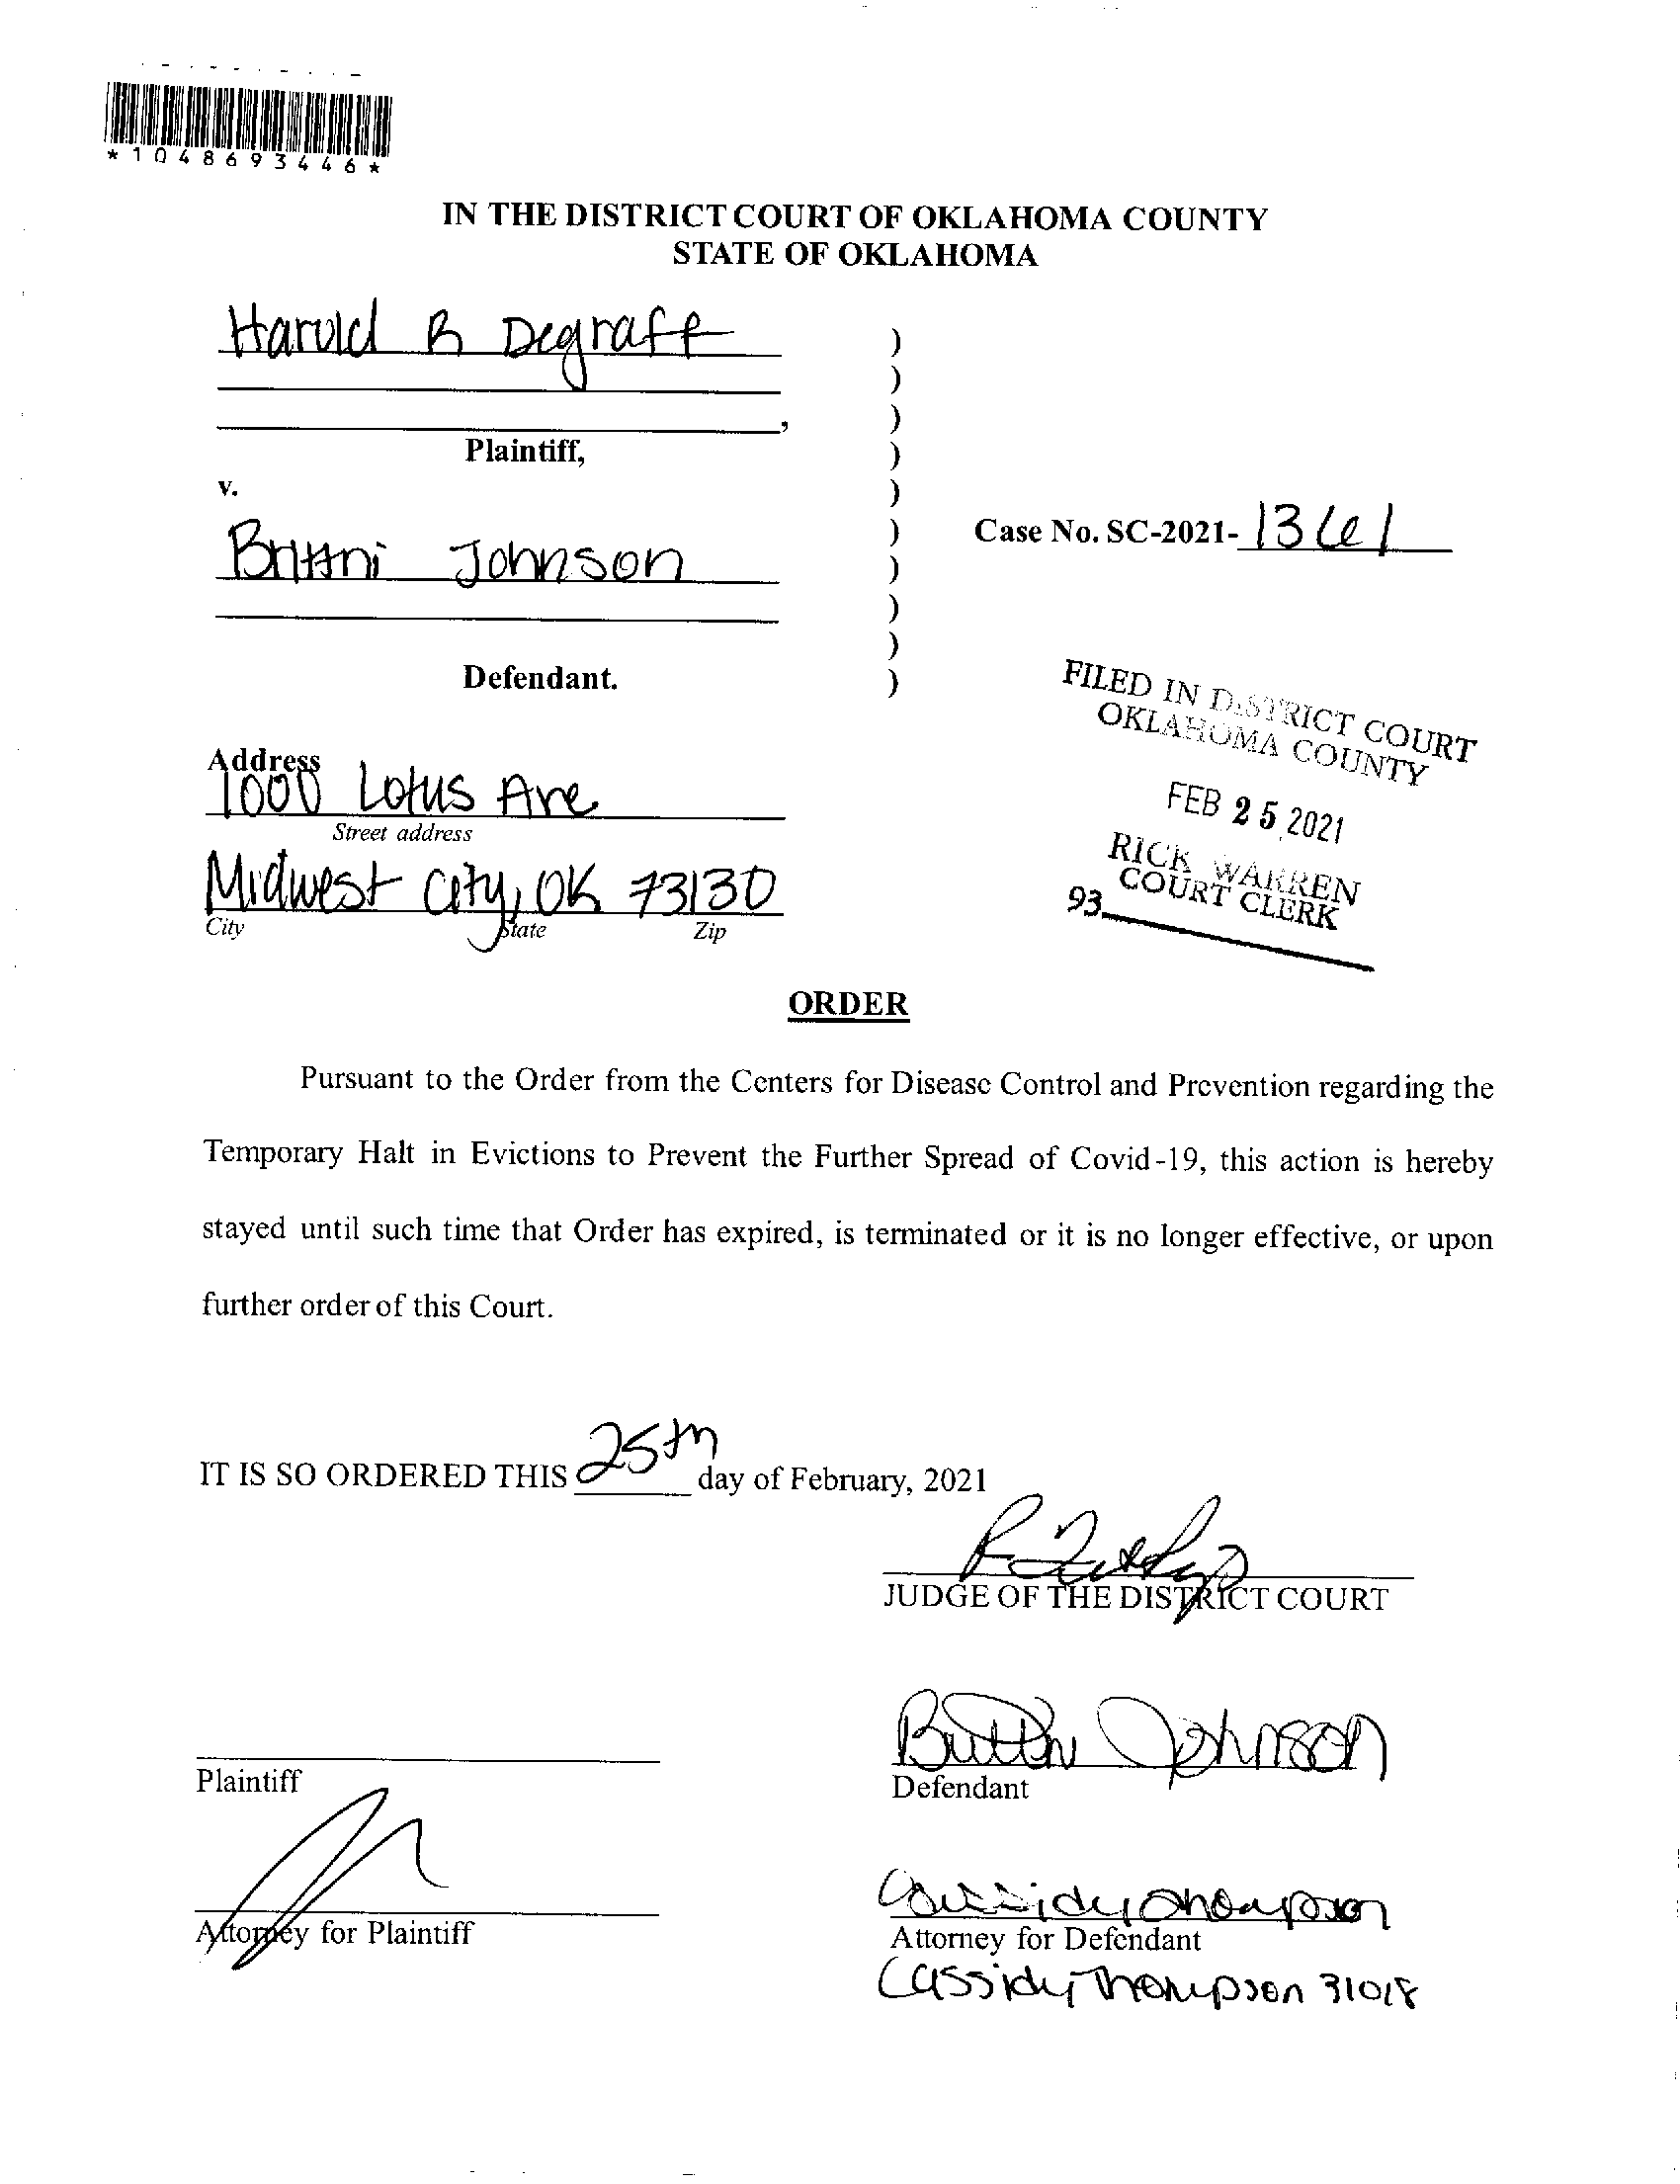 *1048693446*
IN THE DISTRICT COURT OF OKLAHOMA COUNTY
STATE OF OKLAHOMA
Harold R Degraff )
)
, )
Plaintiff, )
v. )
Case No. SC-2021- 1361 )
Brittni Johnson )
)
)
Defendant. )
FILED IN DISTRICT COURT
OKLAHOMA COUNTY
FEB 25 2021
RICK WARREN
COURT CLERK
93
Address
1000 Lotus Ave
Street address
Midwest City, OK 73130
City State Zip
ORDER
Pursuant to the Order from the Centers for Disease Control and Prevention regarding the
Temporary Halt in Evictions to Prevent the Further Spread of Covid-19, this action is hereby
stayed until such time that Order has expired, is terminated or it is no longer effective, or upon
further order of this Court.
IT IS SO ORDERED THIS 25th day of February, 2021
JUDGE OF THE DISTRICT COURT
Brittni Johnson
Plaintiff Defendant
Cassidy Thompson
Attorney for Plaintiff Attorney for Defendant
Cassidy Thompson 31018